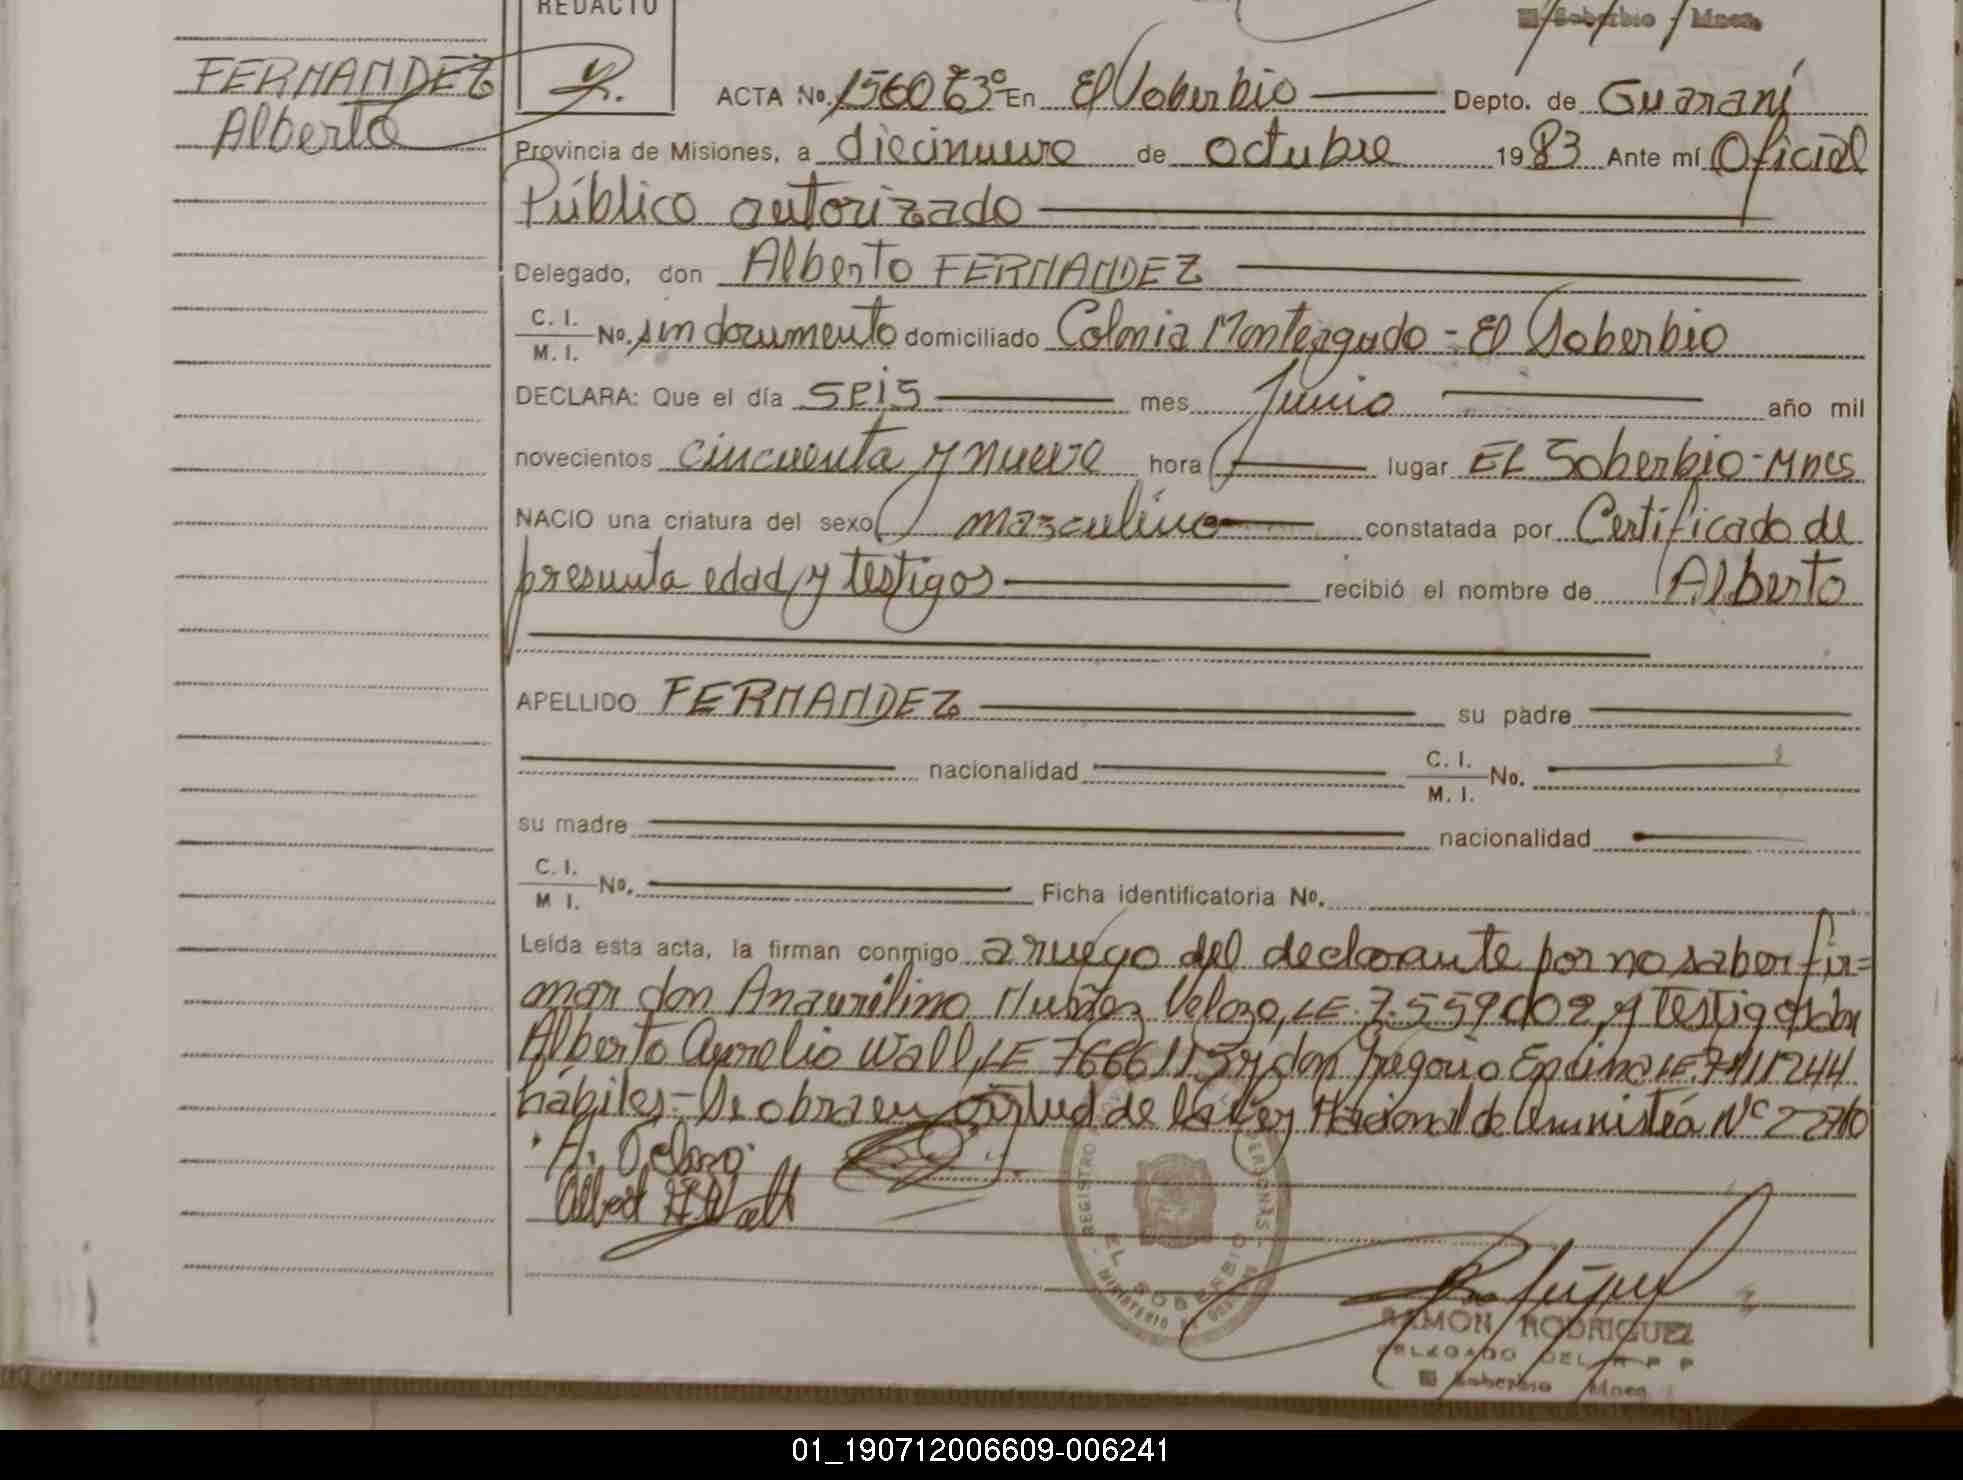 REDACTO
Soberbio - Mnes.
FERNANDEZ
Alberto
ACTA No. 1560 T3º En El Soberbio Depto. de Guaraní
Provincia de Misiones, a diecinueve de octubre 1983 Ante mí Oficial
Público autorizado
Delegado, don Alberto FERNANDEZ
C. I.
M. I. No. sin documento domiciliado Colonia Monteagudo - El Soberbio
DECLARA: Que el día SEIS mes Junio año mil
novecientos cincuenta y nueve hora lugar EL Soberbio - Mnes
NACIO una criatura del sexo masculino constatada por Certificado de
presunta edad y testigos recibió el nombre de Alberto
APELLIDO FERNANDEZ su padre
nacionalidad C. I. M. I. No.
su madre nacionalidad
C. I.
M I. No. Ficha identificatoria No.
Leída esta acta, la firman conmigo a ruego del declarante por no saber fir=
mar don Anaurelino Nuñez Velozo, LE. 7.559.002 y testigos don
Alberto Aurelio Wall, LE 7666115 y don Gregorio Encina LE. 7411244
hábiles - Se obra en virtud de la Ley Nacional de Amnistía Nº
A. Velozo
Albert A. Wall
REGISTRO PERSONAS
EL SOBERBIO
MINISTERIO DE GOBIERNO
RAMÓN RODRIGUEZ
DELEGADO DEL R P P
El Soberbio Mnes.
01_190712006609-006241